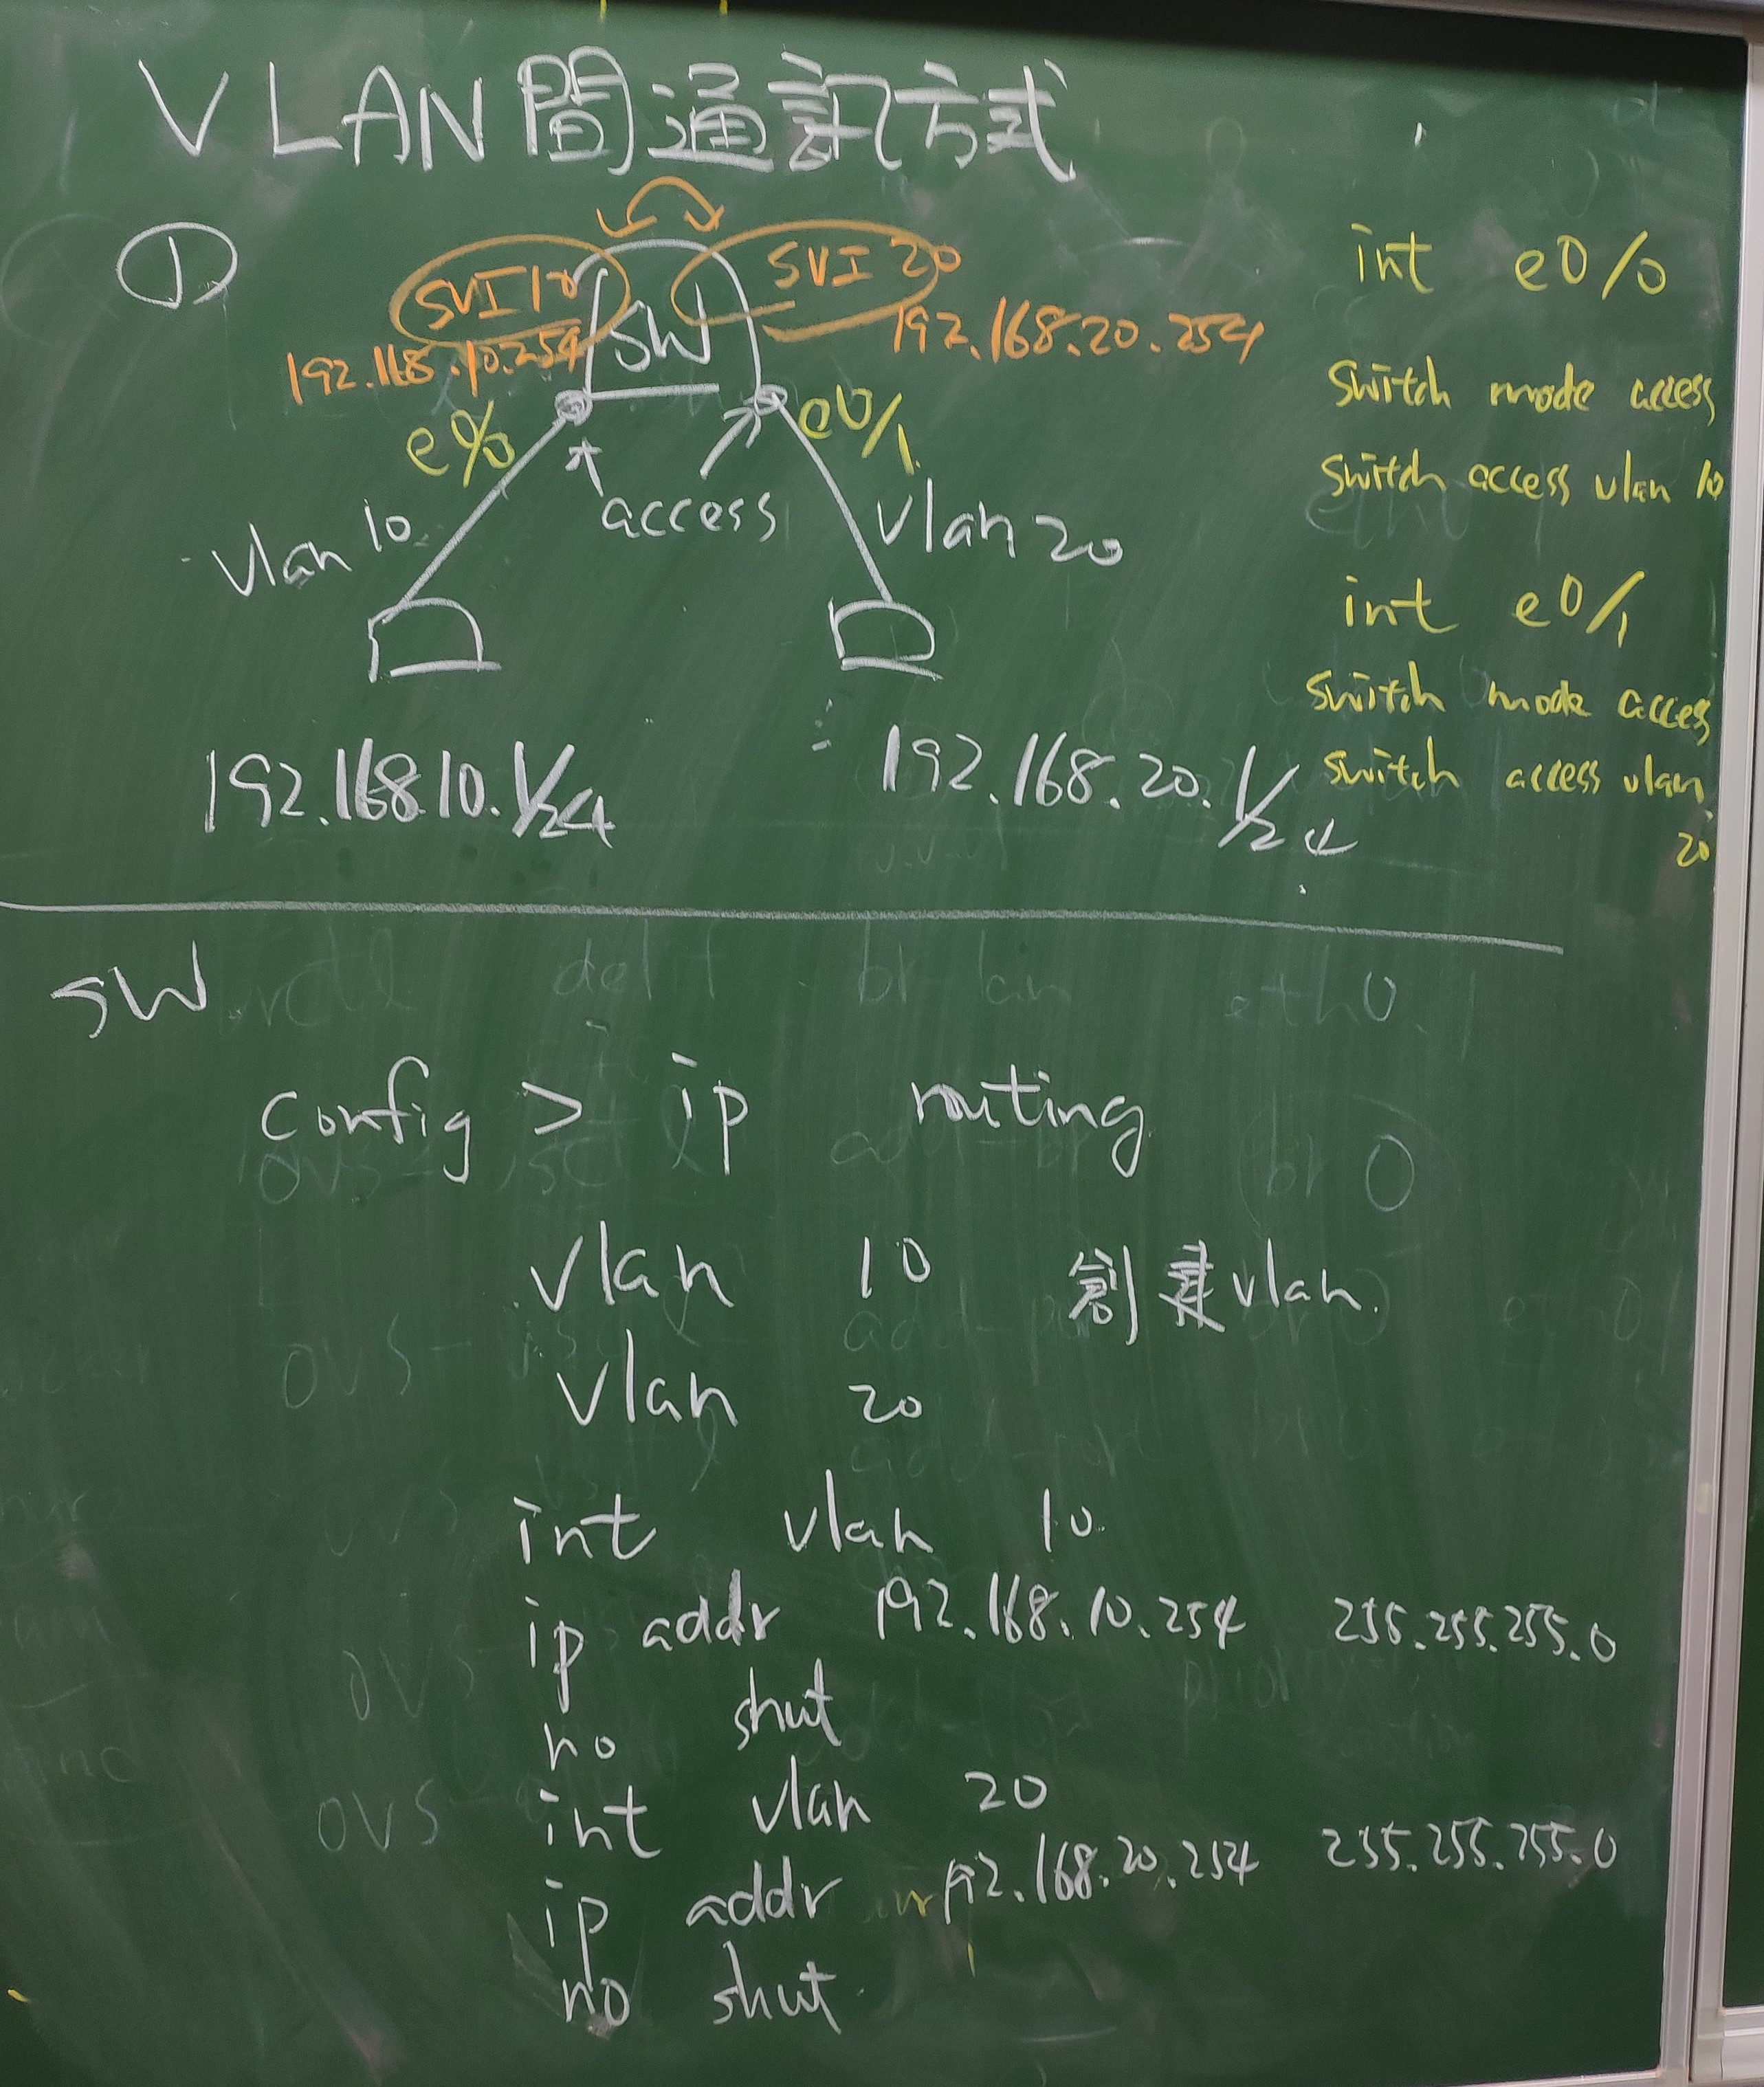 VLAN間通訊方式
①
SVI 10
SVI 20
192.168.10.254
SW
192.168.20.254
e0/0
e0/1
access
vlan 10
vlan 20
192.168.10.1/24
192.168.20.1/24
int e0/0
switch mode access
switch access vlan 10
int e0/1
switch mode access
switch access vlan
20
SW
config > ip routing
vlan 10 創建vlan
vlan 20
int vlan 10
ip addr 192.168.10.254 255.255.255.0
no shut
int vlan 20
ip addr 192.168.20.254 255.255.255.0
no shut